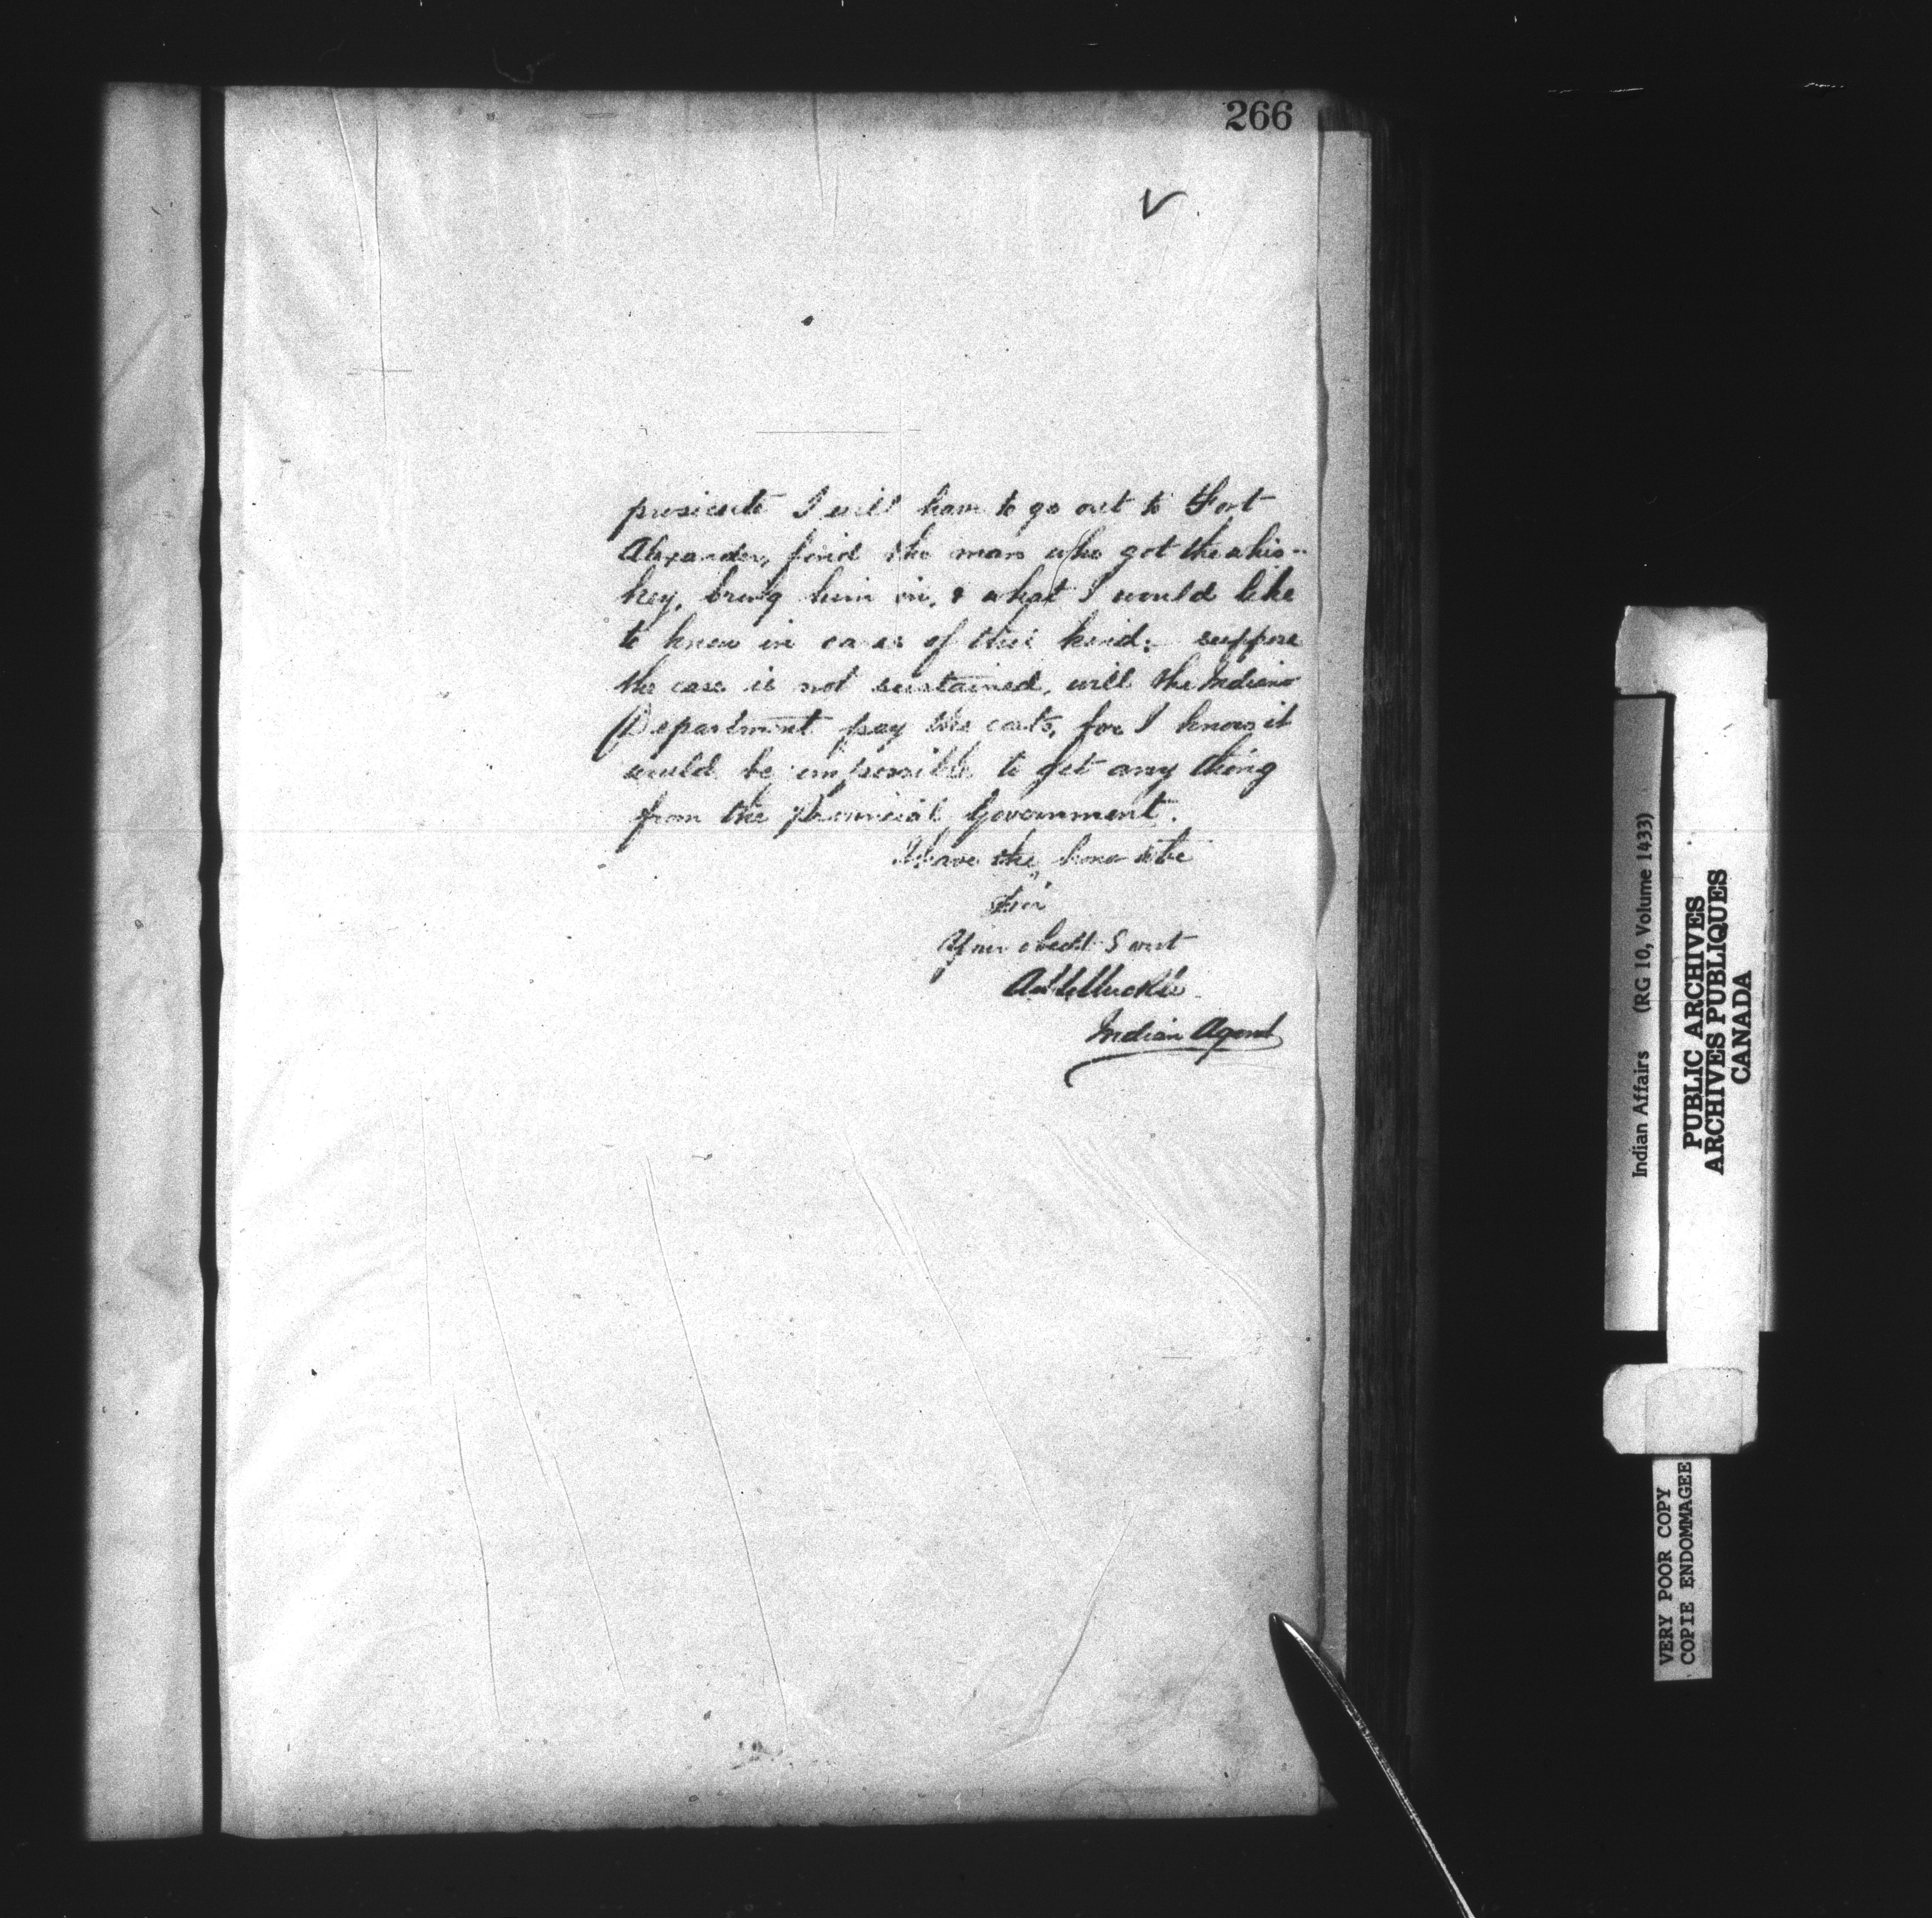 266
prosicute I will have to go out to Fort
Alexander, find the man who got the whis-
key, bring him in, & what I would like
to know in cases of this kind: suppose
the case is not sustained, will the Indian
Department pay the costs, for I know it
would be impossible to get any thing
from the Provincial Government.
I have the honor to be
Sir
Your obedt Servt
Indian Agent
Indian Affairs (RG 10, Volume 1433)
PUBLIC ARCHIVES
ARCHIVES PUBLIQUES
CANADA
VERY POOR COPY
COPIE ENDOMMAGEE